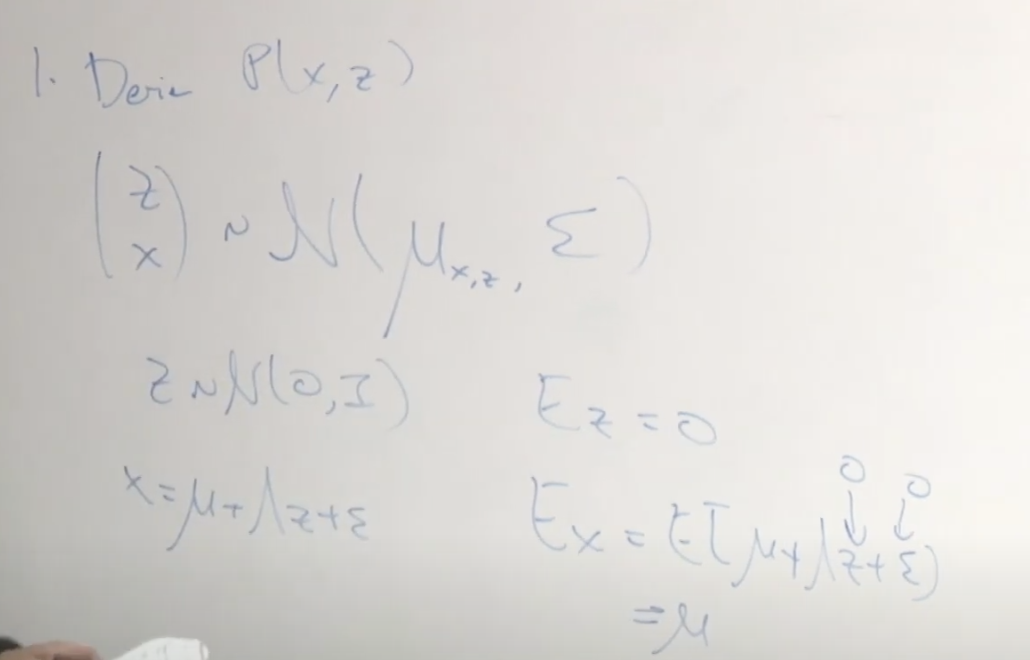 1. Derive P(x,z)
(z
x) ~ N(μx,z, Σ)
z ~ N(0,I)    Ez = 0
x = μ + Λz + ε    Ex = E[μ + Λz + ε]
0    0
↓    ↓
= μ